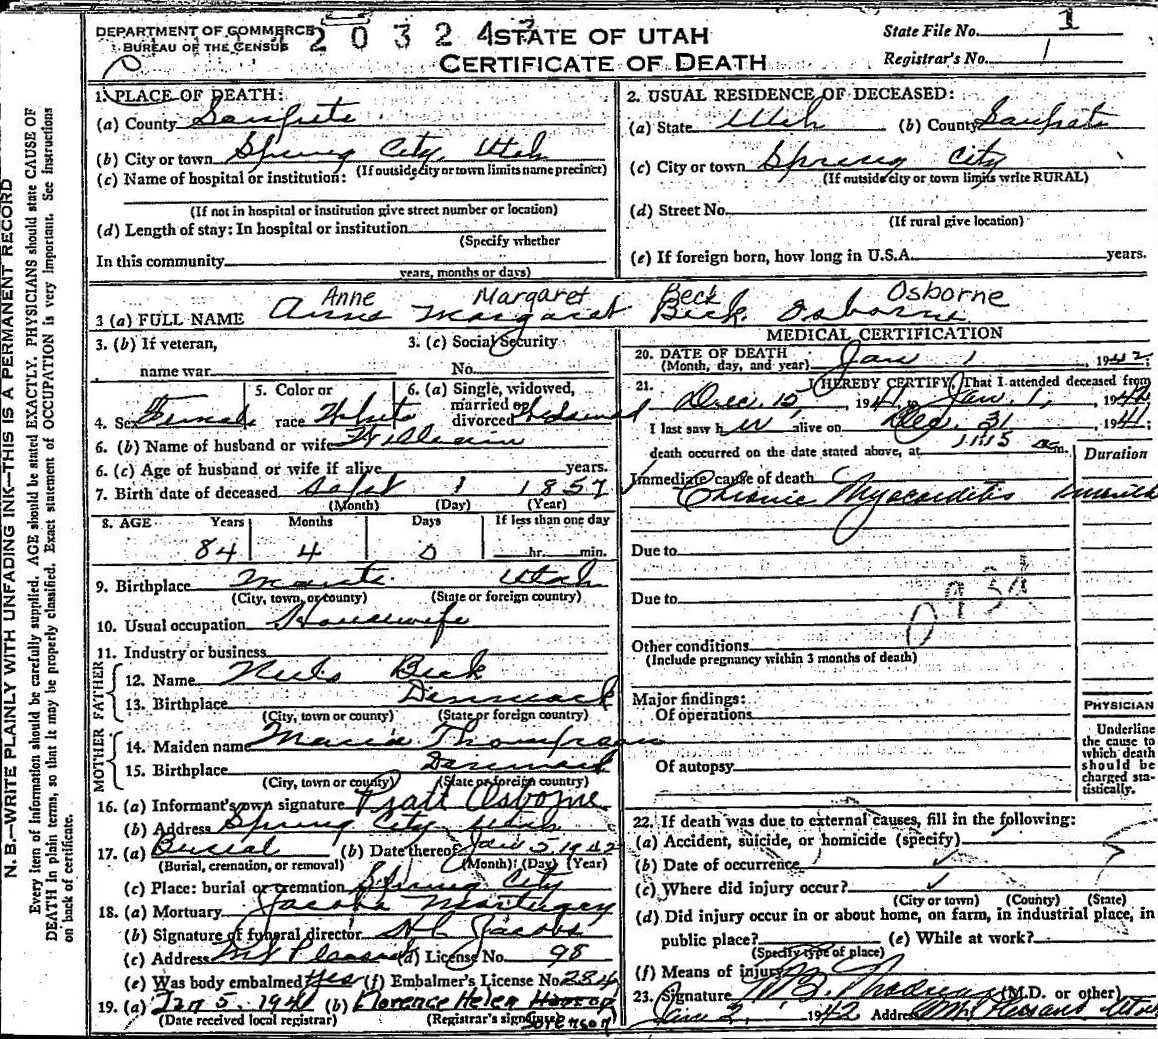 DEPARTMENT OF COMMERCE
BUREAU OF THE CENSUS
2 0 3 2 4
STATE OF UTAH
CERTIFICATE OF DEATH
State File No. 1
Registrar's No. 1
1. PLACE OF DEATH:
(a) County Sanpete
(b) City or town Spring City, Utah
(If outside city or town limits name precinct)
(c) Name of hospital or institution:
(If not in hospital or institution give street number or location)
(d) Length of stay: In hospital or institution
(Specify whether
In this community
years, months or days)
2. USUAL RESIDENCE OF DECEASED:
(a) State Utah (b) County Sanpete
(c) City or town Spring City
(If outside city or town limits write RURAL)
(d) Street No.
(If rural give location)
(e) If foreign born, how long in U.S.A. years.
Anne Margaret Beck Osborne
3 (a) FULL NAME Anne Margaret Beck Osborne
3. (b) If veteran, 3. (c) Social Security
name war No.
5. Color or 6. (a) Single, widowed,
married or
4. Sex Female race White divorced Widowed
6. (b) Name of husband or wife William
6. (c) Age of husband or wife if alive years.
7. Birth date of deceased Sept 1 1857
(Month) (Day) (Year)
8. AGE Years Months Days If less than one day
84 4 0 hr. min.
9. Birthplace Manti Utah
(City, town, or county) (State or foreign country)
10. Usual occupation Housewife
11. Industry or business
FATHER
12. Name Niels Beck
13. Birthplace Denmark
(City, town or county) (State or foreign country)
MOTHER
14. Maiden name Maria Thompson
15. Birthplace Denmark
(City, town or county) (State or foreign country)
16. (a) Informant's own signature Pratt Osborne
(b) Address Spring City Utah
17. (a) Burial (b) Date thereof Jan 5 1942
(Burial, cremation, or removal) (Month) (Day) (Year)
(c) Place: burial or cremation Spring City
18. (a) Mortuary Jacobs Mortuary
(b) Signature of funeral director H C Jacobs
(c) Address Mt Pleasant (d) License No. 98
(e) Was body embalmed? yes (f) Embalmer's License No. 234
19. (a) Jan 5, 1941 (b) Florence Helen
(Date received local registrar) (Registrar's signature)
Sorenson
MEDICAL CERTIFICATION
20. DATE OF DEATH Jan 1, 1942
(Month, day, and year)
21. I HEREBY CERTIFY, That I attended deceased from
Dec. 15, 1941 to Jan. 1, 1942
I last saw her alive on Dec. 31 1941;
death occurred on the date stated above, at 11:15 am.
Duration
Immediate cause of death
Chronic Myocarditis
Due to
Due to
Other conditions
(Include pregnancy within 3 months of death)
Major findings:
Of operations
Of autopsy
PHYSICIAN
Underline
the cause to
which death
should be
charged sta-
tistically.
22. If death was due to external causes, fill in the following:
(a) Accident, suicide, or homicide (specify)
(b) Date of occurrence
(c) Where did injury occur?
(City or town) (County) (State)
(d) Did injury occur in or about home, on farm, in industrial place, in
public place? (e) While at work?
(Specify type of place)
(f) Means of injury
23. Signature (M.D. or other)
Jan 2, 1942 Address Mt. Pleasant Utah
N. B.—WRITE PLAINLY WITH UNFADING INK—THIS IS A PERMANENT RECORD
Every item of Information should be carefully supplied. AGE should be stated EXACTLY. PHYSICIANS should state CAUSE OF
DEATH in plain terms, so that it may be properly classified. Exact statement of OCCUPATION is very important. See instructions
on back of certificate.